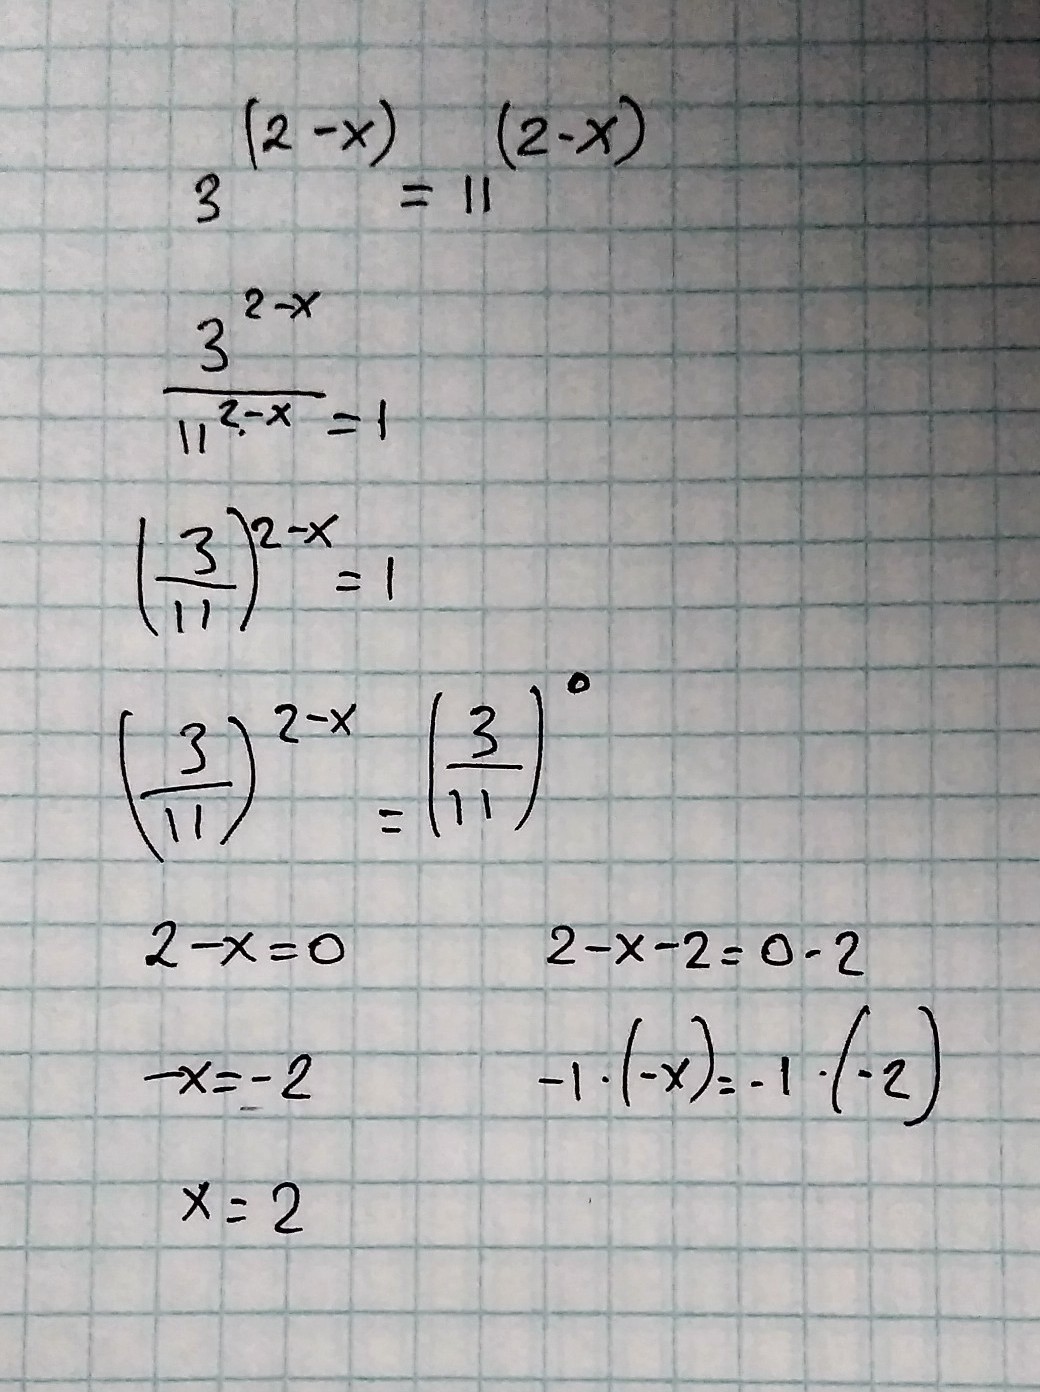 3^(2-x) = 11^(2-x)
3^2-x / 11^2-x = 1
(3/11)^2-x = 1
(3/11)^2-x = (3/11)^0
2-x=0 2-x-2=0-2
-x=-2 -1·(-x)=-1·(-2)
x=2